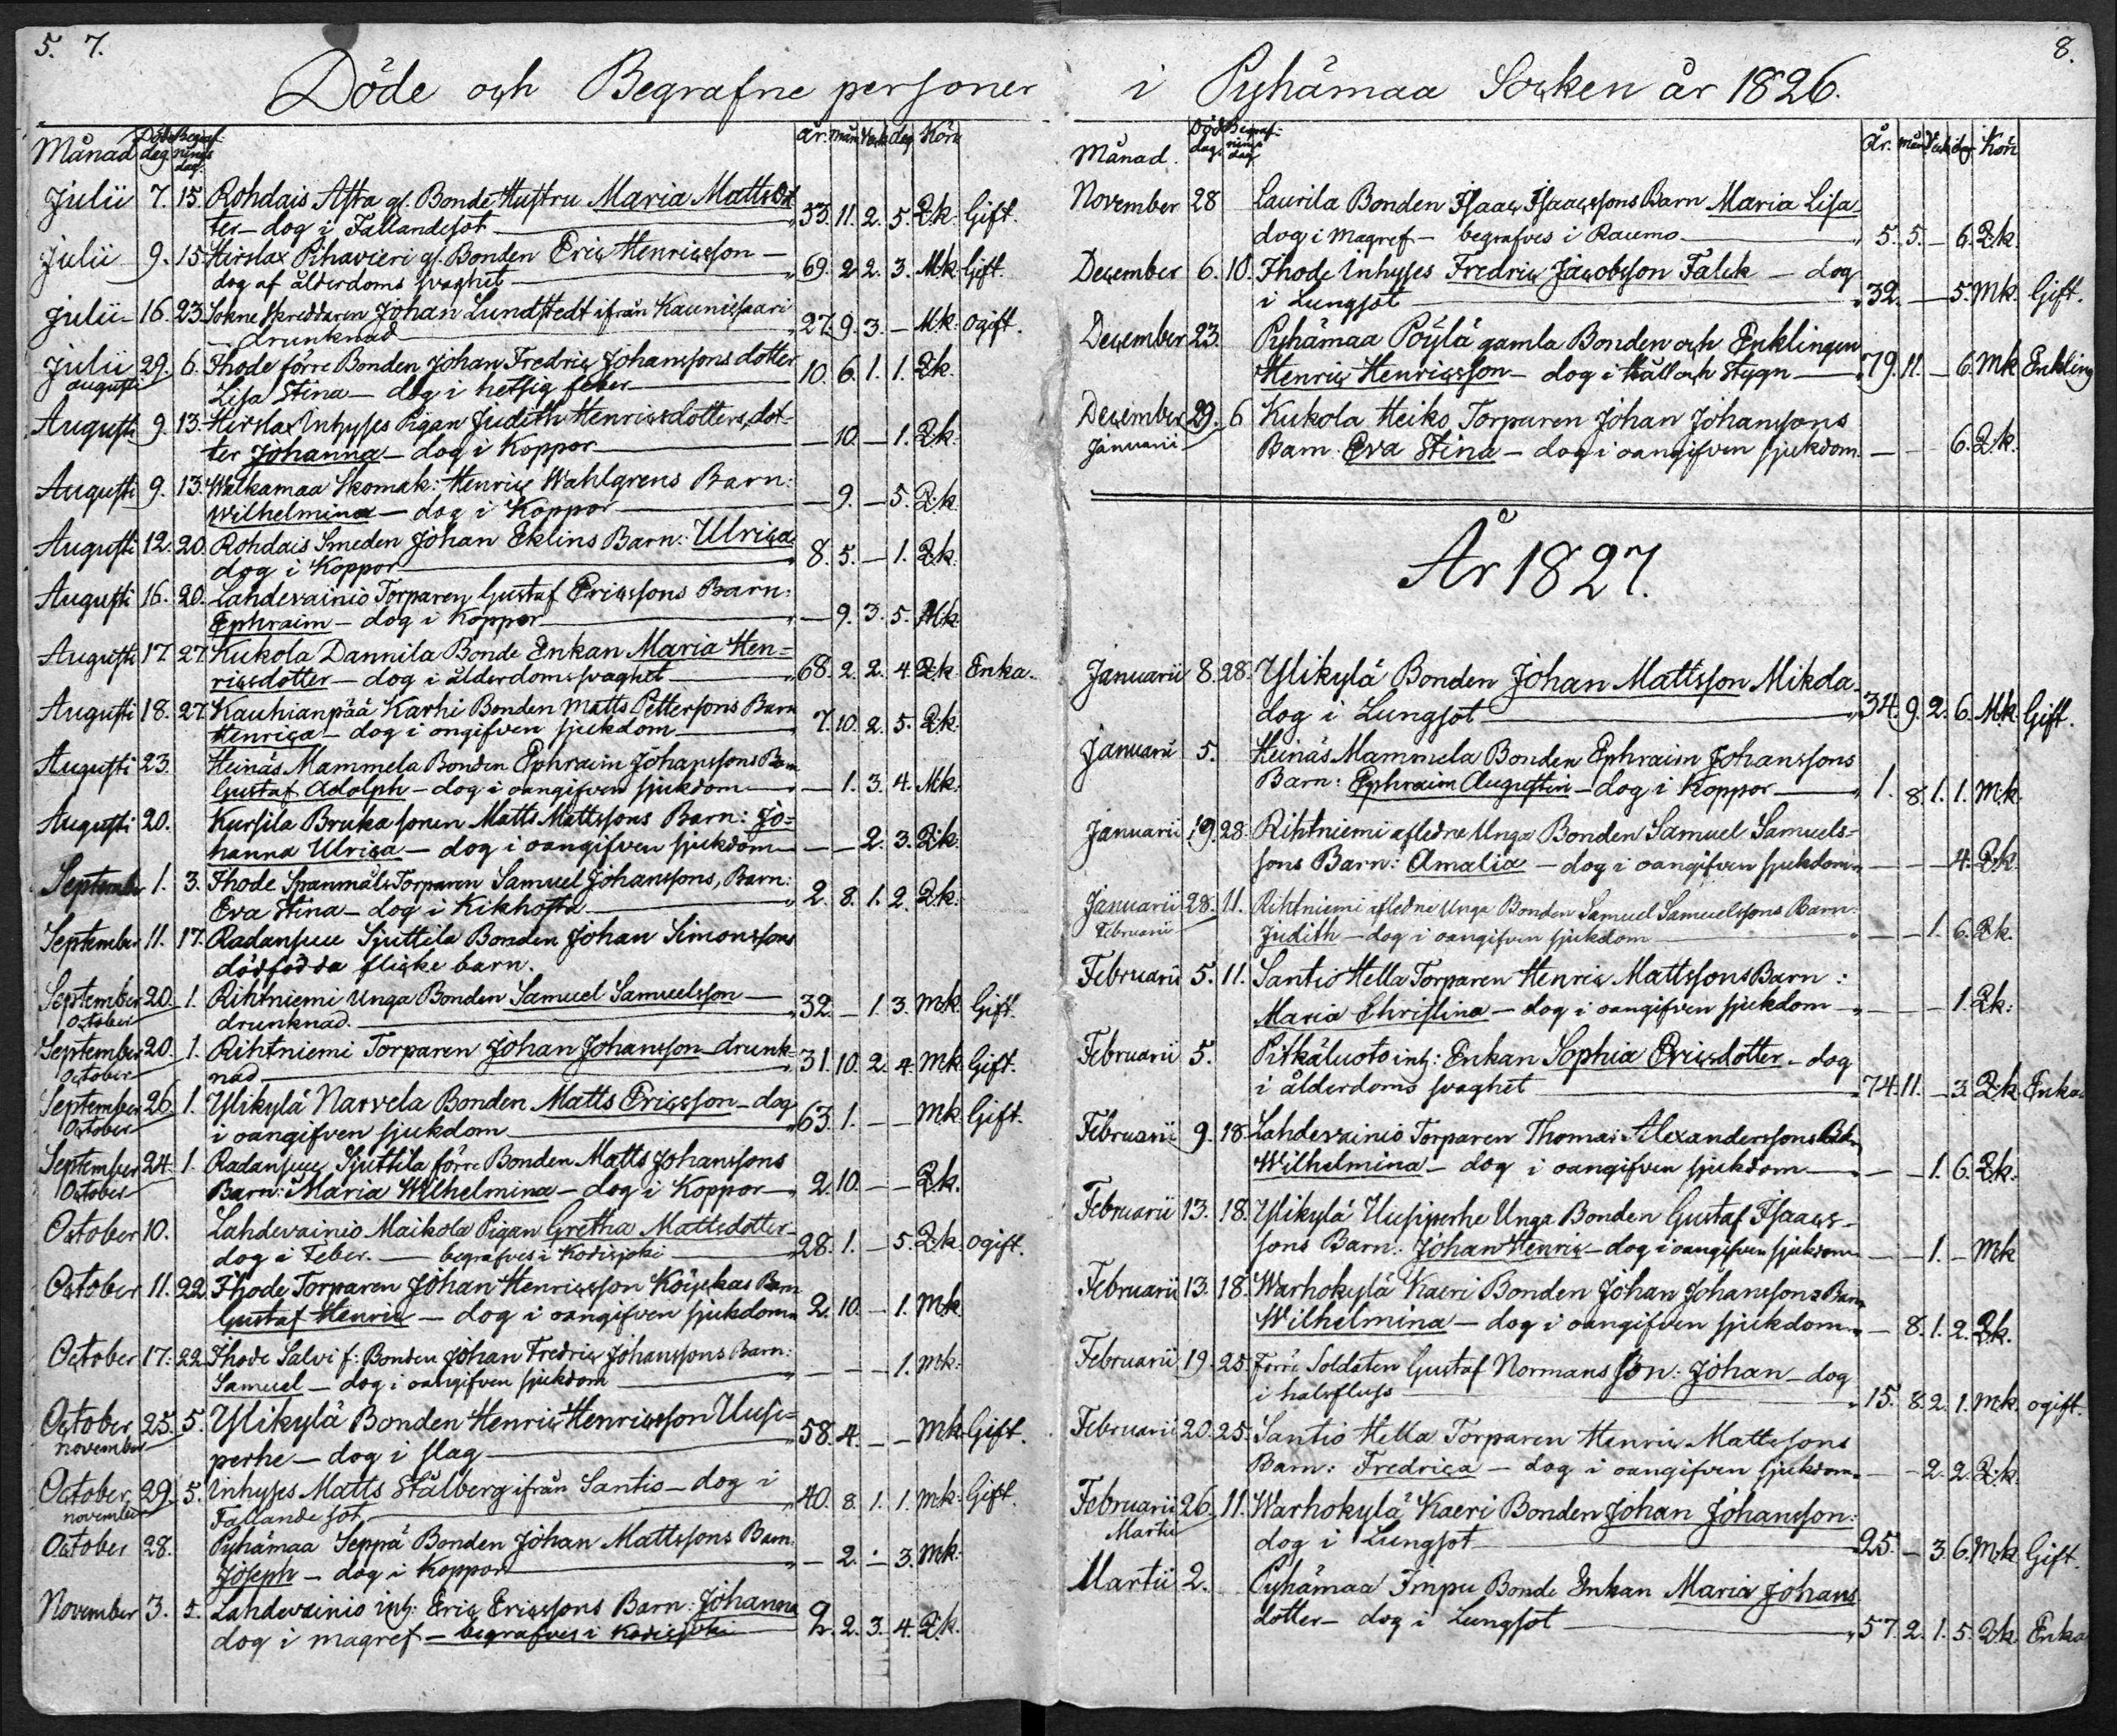 5. 7.
Döde och Begrafne personer
Månad Döde dag Begrafnings dag. år. mån Veck dag Kön
Julii 7. 15. Rohdais Asta gl. Bonde Hustru Maria Mattsdot
ter - dog i Fallandesot 33. 11. 2. 5. Qk. Gift.
Julii 9. 15. Hirslax Pihavieri gl. Bonden Eric Henricsson -
dog af ålderdoms svaghet 69. 2 2. 3. Mk. Gift.
Julii 16. 23. Sokne Skreddaren Johan Lundstedt ifrån Kaunissaari
- drunknad 27. 9. 3. - Mk. ogift.
Julii 29. 6. Ihode förre Bonden Johan Fredric Johanssons dotter
augusti Lisa Stina - dog i hetsig feber 10. 6. 1. 1. Qk.
Augusti 9. 13. Hirslax Inhyses Pigan Judith Henricsdotters dot-
ter Johanna - dog i Koppor - 10. - 1. Qk.
Augusti 9. 13. Walkamaa Skomak: Henric Wahlgrens Barn:
Wilhelmina - dog i Koppor - 9. - 5. Qk.
Augusti 12. 20. Rohdais Smeden Johan Eklins Barn: Ulrica
dog i Koppor 8. 5. - 1. Qk.
Augusti 16. 20. Lahdevainio Torparen Gustaf Ericssons Barn:
Ephraim - dog i Koppor - 9. 3. 5. Mk.
Augusti 17 27 Kukola Dannila Bonde Enkan Maria Hen=
ricsdotter - dog i ålderdomssvaghet 68. 2. 2. 4. Qk. Enka.
Augusti 18. 27. Kauhianpää Karhi Bonden Matts Pettersons Barn
Henrica - dog i ongifven sjukdom 7. 10. 2. 5. Qk.
Augusti 23. Heinäs Mammela Bonden Ephraim Johanssons Barn
Gustaf Adolph - dog i oangifven sjukdom - 1. 3. 4. Mk.
Augusti 20. Kursila Bruka sonen Matts Mattssons Barn: Jo=
hanna Ulrica - dog i oangifven sjukdom - - 2. 3. Qk.
September 1. 3. Ihode Spanmåls Torparen Samuel Johanssons, Barn:
Eva Stina - dog i Kikhosta 2. 8. 1. 2. Qk.
September 11. 17. Radansuu Sjuttila Bonden Johan Simonssons
dödfödda flicke barn.
September 20. 1. Rihtniemi Unga Bonden Samuel Samuelsson -
October drunknad. 32. - 1. 3. Mk. Gift.
September 20. 1. Rihtniemi Torparen Johan Johansson - drunk-
October nad 31. 10. 2. 4. Mk. Gift.
September 26. 1. Ylikylä Narvela Bonden Matts Ericsson - dog
October i oangifven sjukdom 63. 1. - - Mk Gift.
September 24. 1. Radansuu Sjuttila förre Bonden Matts Johanssons
October Barn: Maria Wilhelmina - dog i Koppor 2. 10. - - Qk.
October 10. Lahdevainio Maikola Pigan Gretha Mattsdotter -
dog i Feber. - begrafves i Kodisjoki 28. 1. - 5. Qk. ogift.
October 11. 22. Ihode Torparen Johan Henricsson Köyckas Barn
Gustaf Henric - dog i oangifven sjukdom 2. 10. - 1. Mk.
October 17. 22. Ihode Salvi f: Bonden Johan Fredric Johanssons Barn:
Samuel - dog i oangifven sjukdom - - - 1. Mk.
October 25. 5. Ylikylä Bonden Henric Henricsson Uusi=
November perhe - dog i slag 58. 4. - - Mk. Gift.
October 29. 5. Inhyses Matts Stålberg ifrån Santio - dog i
november Fallande sot. 40. 8. 1. 1. Mk. Gift.
October 28. Pyhämaa Seppä Bonden Johan Mattssons Barn
Joseph - dog i Koppor - 2. - 3. Mk.
November 3. 5. Lahdevainio inh: Eric Ericssons Barn: Johanna
dog i magref - begrafves i Kodisjoki 2. 2. 3. 4. Qk.
8.
i Pyhämaa Socken år 1826.
Månad. Död dag. Begrafnings dag År. mån Veck dag Kön
November 28 Laurila Bonden Isaac Isaacssons Barn Maria Lisa
dog i Magref - begrafves i Raumo 5. 5. - 6. Qk.
December 6. 10. Ihode Inhyses Fredric Jacobsson Falck - dog
i Lungsot 32. - - 5. Mk. Gift.
December 23. Pyhämaa Pöylä gamla Bonden och Enklingen
Henric Henricsson - dog i Håll och Stygn 79. 11. - 6. Mk Enkling
December 29. 6 Kukola Heiko Torparen Johan Johanssons
Januarii Barn. Eva Stina - dog i oangifven sjukdom. - - 6. Qk.
År 1827.
Januarii 8. 28. Ylikylä Bonden Johan Mattsson Mikola
dog i Lungsot 34. 9. 2. 6. Mk. Gift.
Januarii 5. Heinäs Mammela Bonden Ephraim Johanssons
Barn: Ephraim Augustin - dog i Koppor 1. 8. 1. 1. Mk.
Januarii 19. 28. Rihtniemi afledne Unga Bonden Samuel Samuels-
sons Barn: Amalia - dog i oangifven sjukdom - - - 4. Qk.
Januarii 28. 11. Rihtniemi afledne Unga Bonden Samuel Samuelssons Barn.
Februarii Judith - dog i oangifven sjukdom - - 1. 6. Qk.
Februarii 5. 11. Santio Hella Torparen Henric Mattssons Barn:
Maria Christina - dog i oangifven sjukdom - - - 1. Qk.
Februarii 5. Pitkäluoto inh: Enkan Sophia Ericsdotter - dog
i ålderdoms svaghet 74. 11. - 3. Qk. Enka
Februarii 9. 18. Lahdevainio Torparen Thomas Alexanderssons Barn
Wilhelmina - dog i oangifven sjukdom - - 1. 6. Qk.
Februarii 13. 18. Ylikylä Uusiperhe Unga Bonden Gustaf Isaacs-
sons Barn. Johan Henric - dog i oangifven sjukdom - - 1. - Mk
Februarii 13. 18. Warhokylä Kaeri Bonden Johan Johanssons Barn
Wilhelmina - dog i oangifven sjukdom. - 8. 1. 2. Qk.
Februarii 19. 25. Förre Soldaten Gustaf Normans Son: Johan - dog
i halsfluss 15. 8. 2. 1. Mk. ogift.
Februarii 20. 25. Santio Hella Torparen Henric Mattssons
Barn: Fredrica - dog i oangifven sjukdom. - - 2. 2. Qk.
Februarii 26. 11. Warhokylä Kaeri Bonden Johan Johansson:
Martii dog i Lungsot 25. - 3. 6. Mk. Gift.
Martii 2. Pyhämaa Impu Bonde Enkan Maria Johans
dotter - dog i Lungsot 57. 2. 1. 5. Qk. Enka